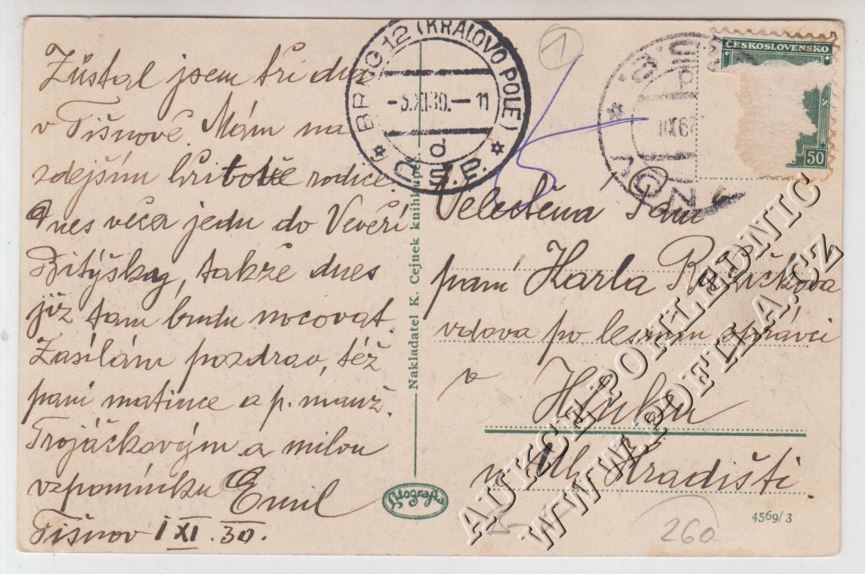 Zůstal jsem tři dni
v Tišnově. Mám na
zdejším hřbitově rodiče.
Dnes večer jedu do Veveří
Bitýšky, takže dnes
již tam budu nocovat.
Zasílám pozdrav, též
paní matince a p. manž.
Trojáčkovým a milou
vzpomínku Emil
Tišnov 1 XI. 30.
Nakladatel K. Cejnek knihkupec
Litografia
BRNO 12 (KRÁLOVO POLE)
-3.XI.30.-11
d
Č.S.P.
1
ČESKOSLOVENSKO
50
Velectěná Paní
paní Karla Růžičková
vdova po lesním správci
v
u Uh. Hradiště.
4569/3
260
AUKCE POHLEDNIC
WWW.APOETLA.CZ